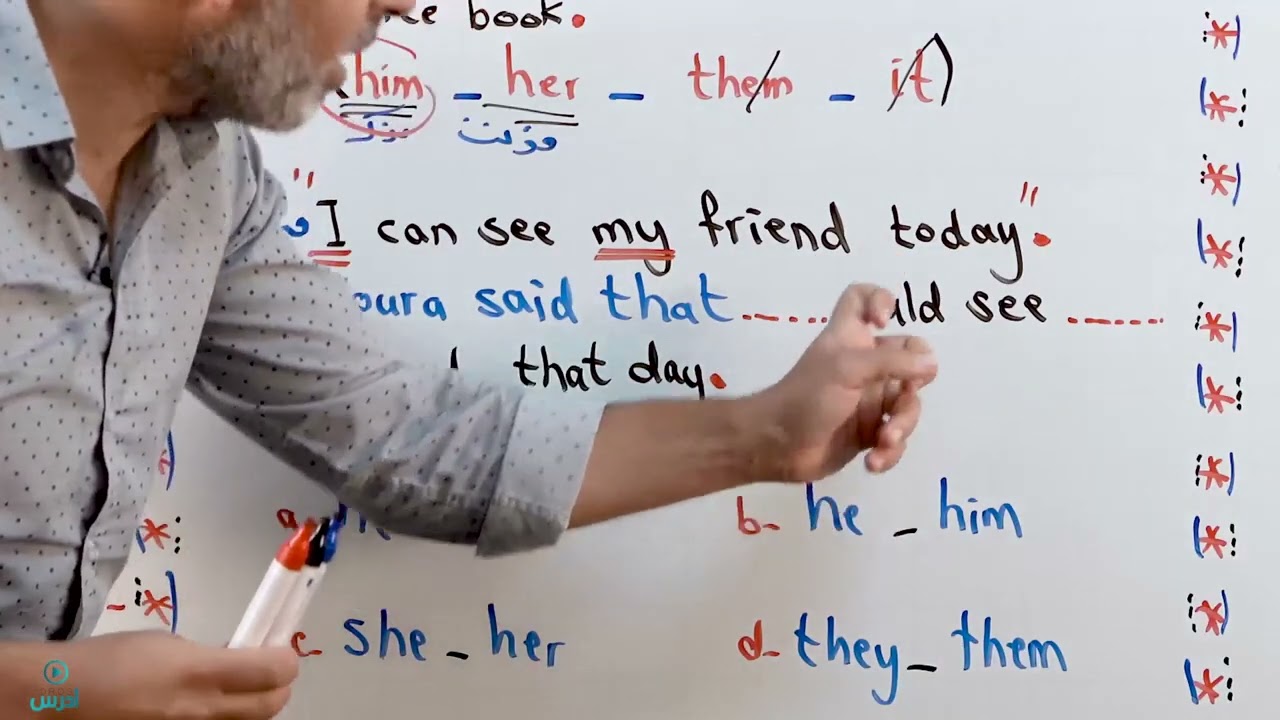 book.
him - her - them - it)
مذكر مؤنث
"I can see my friend today."
said that ....... see .......
that day.
a-
b- he - him
c- she - her
d- they - them
ادرس